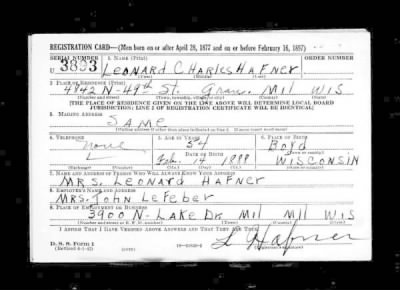 REGISTRATION CARD—(Men born on or after April 28, 1877 and on or before February 16, 1897)
SERIAL NUMBER 1. NAME (Print) ORDER NUMBER
U 3803 LEONARD CHARLES HAFNER
(First) (Middle) (Last)
2. PLACE OF RESIDENCE (Print)
4842 N-49th St. Mil WIS
(Number and street) (Town, township, village, or city) (County) (State)
[THE PLACE OF RESIDENCE GIVEN ON THE LINE ABOVE WILL DETERMINE LOCAL BOARD
JURISDICTION; LINE 2 OF REGISTRATION CERTIFICATE WILL BE IDENTICAL]
3. MAILING ADDRESS
SAME
(Mailing address if other than place indicated on line 2. If same insert word same)
4. TELEPHONE 5. AGE IN YEARS 6. PLACE OF BIRTH
None 54 Boyd
DATE OF BIRTH (Town or county)
Feb. 14 1888 WISCONSIN
(Exchange) (Number) (Mo.) (Day) (Yr.) (State or country)
7. NAME AND ADDRESS OF PERSON WHO WILL ALWAYS KNOW YOUR ADDRESS
MRS. LEONARD HAFNER
8. EMPLOYER'S NAME AND ADDRESS
MRS. JOHN LEFEBER
9. PLACE OF EMPLOYMENT OR BUSINESS
3900 N- LAKE DR. MIL MIL WIS
(Number and street or R. F. D. number) (Town) (County) (State)
I AFFIRM THAT I HAVE VERIFIED ABOVE ANSWERS AND THAT THEY ARE TRUE.
L Hafner
D. S. S. Form 1
(Revised 4-1-42) (over)
(Registrant's signature)